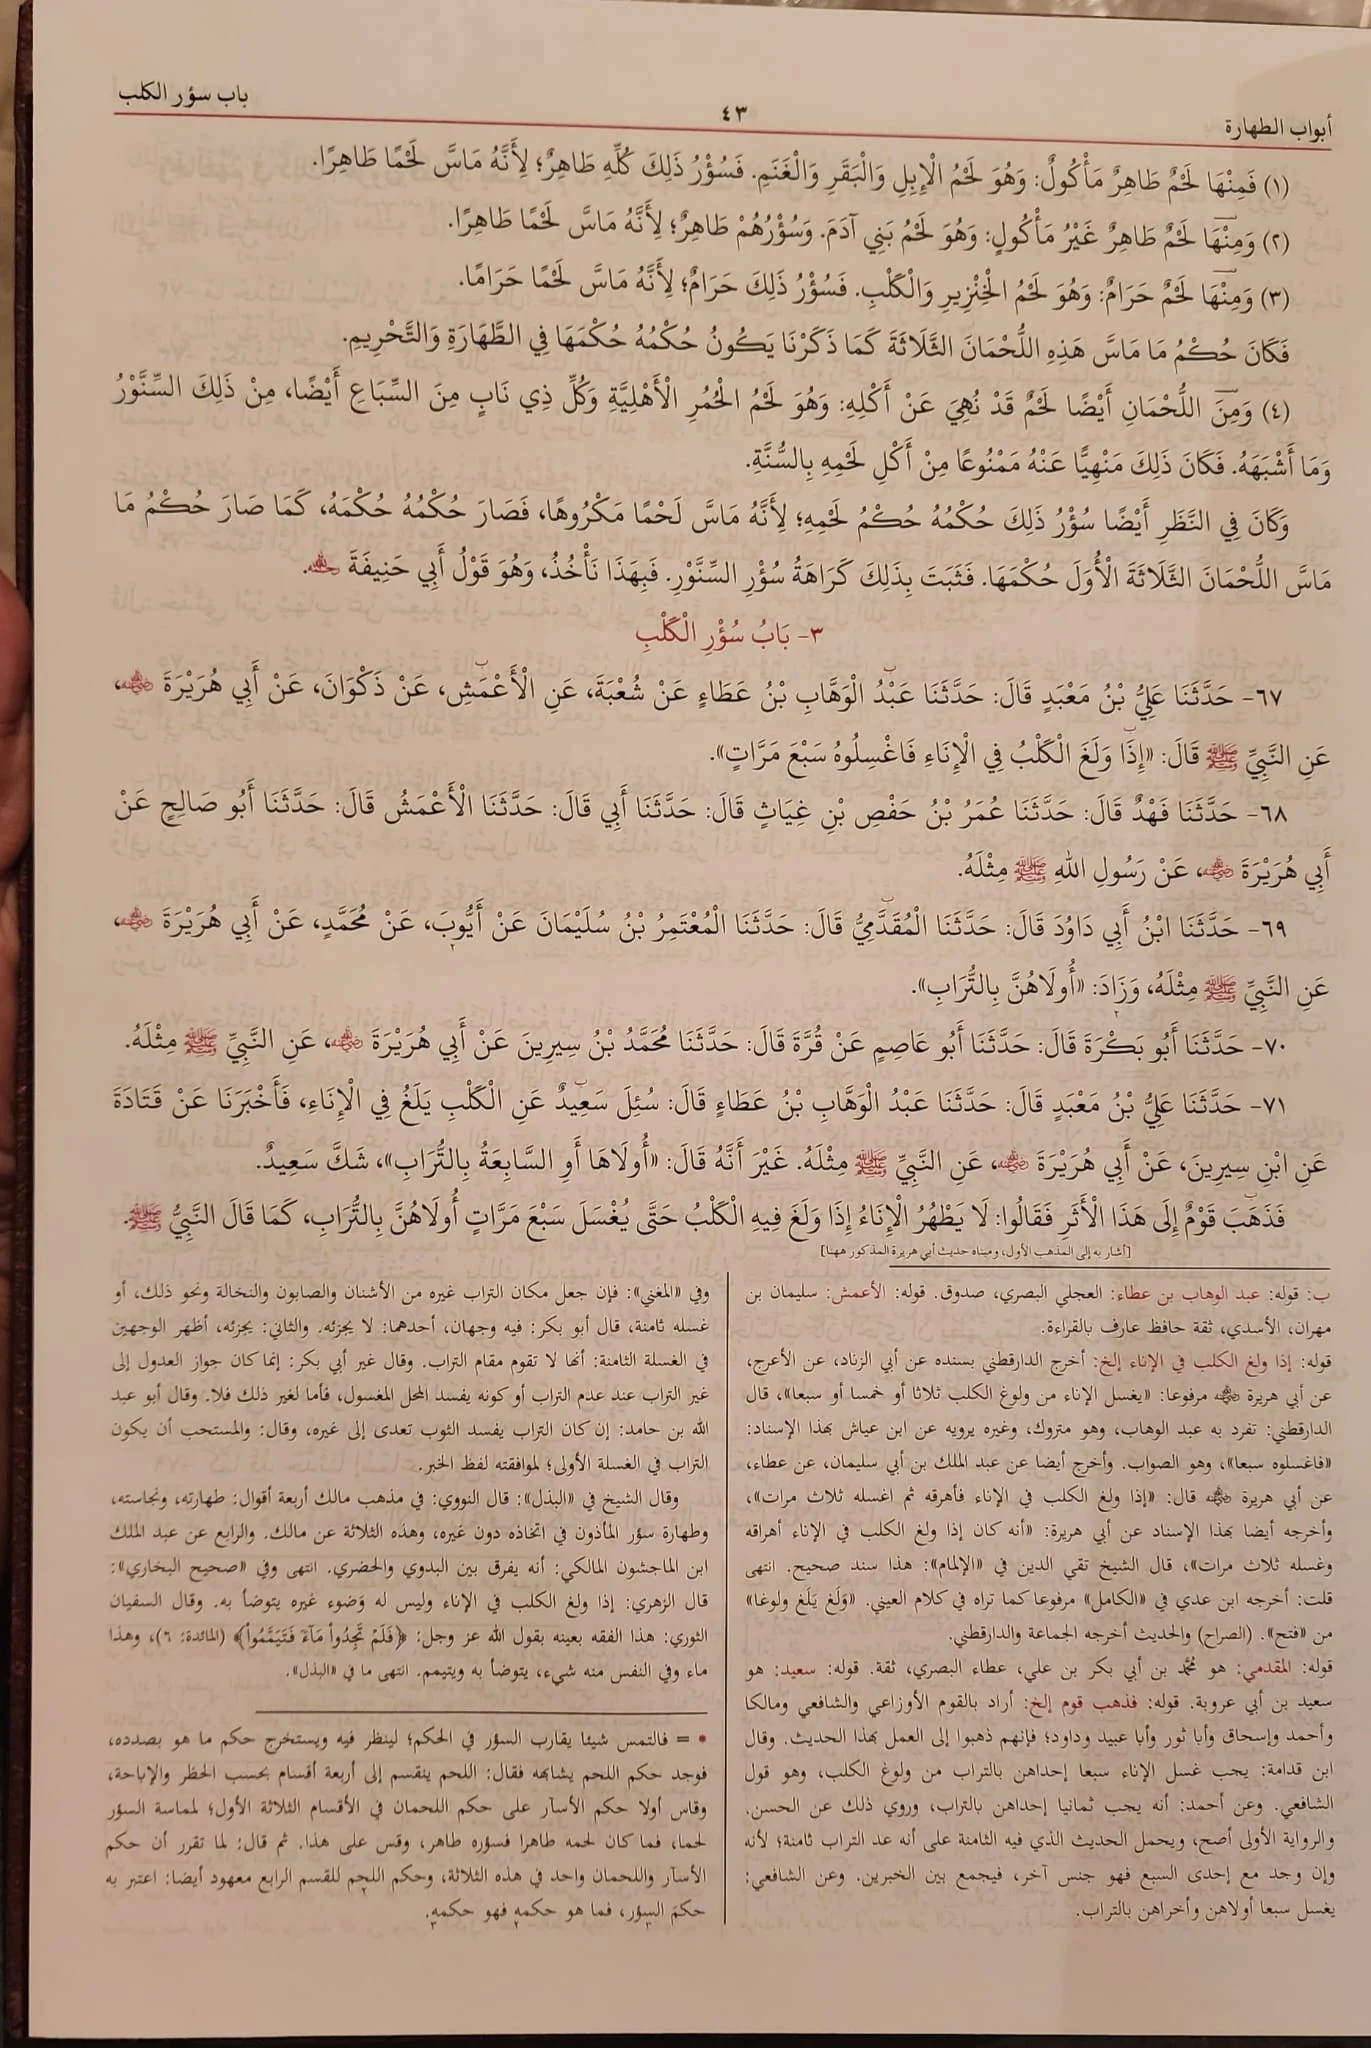 أبواب الطهارة
٤٣
باب سؤر الكلب
(١) فَمِنْهَا لَحْمٌ طَاهِرٌ مَأْكُولٌ: وَهُوَ لَحْمُ الْإِبِلِ وَالْبَقَرِ وَالْغَنَمِ. فَسُؤْرُ ذَلِكَ كُلِّهِ طَاهِرٌ؛ لِأَنَّهُ مَاسَّ لَحْمًا طَاهِرًا.
(٢) وَمِنْهَا لَحْمٌ طَاهِرٌ غَيْرُ مَأْكُولٍ: وَهُوَ لَحْمُ بَنِي آدَمَ. وَسُؤْرُهُمْ طَاهِرٌ؛ لِأَنَّهُ مَاسَّ لَحْمًا طَاهِرًا.
(٣) وَمِنْهَا لَحْمٌ حَرَامٌ: وَهُوَ لَحْمُ الْخِنْزِيرِ وَالْكَلْبِ. فَسُؤْرُ ذَلِكَ حَرَامٌ؛ لِأَنَّهُ مَاسَّ لَحْمًا حَرَامًا.
فَكَانَ حُكْمُ مَا مَاسَّ هَذِهِ اللُّحْمَانَ الثَّلَاثَةَ كَمَا ذَكَرْنَا يَكُونُ حُكْمُهُ حُكْمَهَا فِي الطَّهَارَةِ وَالتَّحْرِيمِ.
(٤) وَمِنَ اللُّحْمَانِ أَيْضًا لَحْمٌ قَدْ نُهِيَ عَنْ أَكْلِهِ: وَهُوَ لَحْمُ الْحُمُرِ الْأَهْلِيَّةِ وَكُلِّ ذِي نَابٍ مِنَ السِّبَاعِ أَيْضًا، مِنْ ذَلِكَ السِّنَّوْرُ
وَمَا أَشْبَهَهُ. فَكَانَ ذَلِكَ مَنْهِيًّا عَنْهُ مَمْنُوعًا مِنْ أَكْلِ لَحْمِهِ بِالسُّنَّةِ.
وَكَانَ فِي النَّظَرِ أَيْضًا سُؤْرُ ذَلِكَ حُكْمُهُ حُكْمُ لَحْمِهِ؛ لِأَنَّهُ مَاسَّ لَحْمًا مَكْرُوهًا، فَصَارَ حُكْمُهُ حُكْمَهُ، كَمَا صَارَ حُكْمُ مَا
مَاسَّ اللُّحْمَانَ الثَّلَاثَةَ الْأُوَلَ حُكْمَهَا. فَثَبَتَ بِذَلِكَ كَرَاهَةُ سُؤْرِ السِّنَّوْرِ. فَبِهَذَا نَأْخُذُ، وَهُوَ قَوْلُ أَبِي حَنِيفَةَ رحمه الله.
٣- بَابُ سُؤْرِ الْكَلْبِ
٦٧- حَدَّثَنَا عَلِيُّ بْنُ مَعْبَدٍ قَالَ: حَدَّثَنَا عَبْدُ الْوَهَّابِ بْنُ عَطَاءٍ عَنْ شُعْبَةَ، عَنِ الْأَعْمَشِ، عَنْ ذَكْوَانَ، عَنْ أَبِي هُرَيْرَةَ رضي الله عنه،
عَنِ النَّبِيِّ ﷺ قَالَ: «إِذَا وَلَغَ الْكَلْبُ فِي الْإِنَاءِ فَاغْسِلُوهُ سَبْعَ مَرَّاتٍ».
٦٨- حَدَّثَنَا فَهْدٌ قَالَ: حَدَّثَنَا عُمَرُ بْنُ حَفْصِ بْنِ غِيَاثٍ قَالَ: حَدَّثَنَا أَبِي قَالَ: حَدَّثَنَا الْأَعْمَشُ قَالَ: حَدَّثَنَا أَبُو صَالِحٍ عَنْ
أَبِي هُرَيْرَةَ رضي الله عنه، عَنْ رَسُولِ اللهِ ﷺ مِثْلَهُ.
٦٩- حَدَّثَنَا ابْنُ أَبِي دَاوُدَ قَالَ: حَدَّثَنَا الْمُقَدَّمِيُّ قَالَ: حَدَّثَنَا الْمُعْتَمِرُ بْنُ سُلَيْمَانَ عَنْ أَيُّوبَ، عَنْ مُحَمَّدٍ، عَنْ أَبِي هُرَيْرَةَ رضي الله عنه،
عَنِ النَّبِيِّ ﷺ مِثْلَهُ، وَزَادَ: «أُولَاهُنَّ بِالتُّرَابِ».
٧٠- حَدَّثَنَا أَبُو بَكْرَةَ قَالَ: حَدَّثَنَا أَبُو عَاصِمٍ عَنْ قُرَّةَ قَالَ: حَدَّثَنَا مُحَمَّدُ بْنُ سِيرِينَ عَنْ أَبِي هُرَيْرَةَ رضي الله عنه، عَنِ النَّبِيِّ ﷺ مِثْلَهُ.
٧١- حَدَّثَنَا عَلِيُّ بْنُ مَعْبَدٍ قَالَ: حَدَّثَنَا عَبْدُ الْوَهَّابِ بْنُ عَطَاءٍ قَالَ: سُئِلَ سَعِيدٌ عَنِ الْكَلْبِ يَلَغُ فِي الْإِنَاءِ، فَأَخْبَرَنَا عَنْ قَتَادَةَ
عَنِ ابْنِ سِيرِينَ، عَنْ أَبِي هُرَيْرَةَ رضي الله عنه، عَنِ النَّبِيِّ ﷺ مِثْلَهُ. غَيْرَ أَنَّهُ قَالَ: «أُولَاهَا أَوِ السَّابِعَةُ بِالتُّرَابِ»، شَكَّ سَعِيدٌ.
فَذَهَبَ قَوْمٌ إِلَى هَذَا الْأَثَرِ فَقَالُوا: لَا يَطْهُرُ الْإِنَاءُ إِذَا وَلَغَ فِيهِ الْكَلْبُ حَتَّى يُغْسَلَ سَبْعَ مَرَّاتٍ أُولَاهُنَّ بِالتُّرَابِ، كَمَا قَالَ النَّبِيُّ ﷺ.
[أشار به إلى المذهب الأول، ومبناه حديث أبي هريرة المذكور ههنا]
ب: قوله: عبد الوهاب بن عطاء: العجلي البصري، صدوق. قوله: الأعمش: سليمان بن
مهران، الأسدي، ثقة حافظ عارف بالقراءة.
قوله: إذا ولغ الكلب في الإناء إلخ: أخرج الدارقطني بسنده عن أبي الزناد، عن الأعرج،
عن أبي هريرة رضي الله عنه مرفوعا: «يغسل الإناء من ولوغ الكلب ثلاثا أو خمسا أو سبعا»، قال
الدارقطني: تفرد به عبد الوهاب، وهو متروك، وغيره يرويه عن ابن عياش بهذا الإسناد:
«فاغسلوه سبعا»، وهو الصواب. وأخرج أيضا عن عبد الملك بن أبي سليمان، عن عطاء،
عن أبي هريرة رضي الله عنه قال: «إذا ولغ الكلب في الإناء فأهرقه ثم اغسله ثلاث مرات»،
وأخرجه أيضا بهذا الإسناد عن أبي هريرة: «أنه كان إذا ولغ الكلب في الإناء أهراقه
وغسله ثلاث مرات»، قال الشيخ تقي الدين في «الإلمام»: هذا سند صحيح. انتهى
قلت: أخرجه ابن عدي في «الكامل» مرفوعا كما تراه في كلام العيني. «وَلَغ يَلَغ ولوغا»
من «فتح». (الصراح) والحديث أخرجه الجماعة والدارقطني.
قوله: المقدمي: هو محمد بن أبي بكر بن علي، عطاء البصري، ثقة. قوله: سعيد: هو
سعيد بن أبي عروبة. قوله: فذهب قوم إلخ: أراد بالقوم الأوزاعي والشافعي ومالكا
وأحمد وإسحاق وأبا ثور وأبا عبيد وداود؛ فإنهم ذهبوا إلى العمل بهذا الحديث. وقال
ابن قدامة: يجب غسل الإناء سبعا إحداهن بالتراب من ولوغ الكلب، وهو قول
الشافعي. وعن أحمد: أنه يجب ثمانيا إحداهن بالتراب، وروي ذلك عن الحسن.
والرواية الأولى أصح، ويحمل الحديث الذي فيه الثامنة على أنه عد التراب ثامنة؛ لأنه
وإن وجد مع إحدى السبع فهو جنس آخر، فيجمع بين الخبرين. وعن الشافعي:
يغسل سبعا أولاهن وأخراهن بالتراب.
وفي «المغني»: فإن جعل مكان التراب غيره من الأشنان والصابون والنخالة ونحو ذلك، أو
غسله ثامنة، قال أبو بكر: فيه وجهان، أحدهما: لا يجزئه. والثاني: يجزئه، أظهر الوجهين
في الغسلة الثامنة: أنها لا تقوم مقام التراب. وقال غير أبي بكر: إنما كان جواز العدول إلى
غير التراب عند عدم التراب أو كونه يفسد المحل المغسول، فأما لغير ذلك فلا. وقال أبو عبد
الله بن حامد: إن كان التراب يفسد الثوب تعدى إلى غيره، وقال: والمستحب أن يكون
التراب في الغسلة الأولى؛ لموافقته لفظ الخبر.
وقال الشيخ في «البذل»: قال النووي: في مذهب مالك أربعة أقوال: طهارته، ونجاسته،
وطهارة سؤر المأذون في اتخاذه دون غيره، وهذه الثلاثة عن مالك. والرابع عن عبد الملك
ابن الماجشون المالكي: أنه يفرق بين البدوي والحضري. انتهى وفي «صحيح البخاري»:
قال الزهري: إذا ولغ الكلب في الإناء وليس له وَضوء غيره يتوضأ به. وقال السفيان
الثوري: هذا الفقه بعينه بقول الله عز وجل: ﴿فَلَمْ تَجِدُواْ مَآءً فَتَيَمَّمُواْ﴾ (المائدة: ٦)، وهذا
ماء وفي النفس منه شيء، يتوضأ به ويتيمم. انتهى ما في «البذل».
* = فالتمس شيئا يقارب السؤر في الحكم؛ لينظر فيه ويستخرج حكم ما هو بصدده،
فوجد حكم اللحم يشابهه فقال: اللحم ينقسم إلى أربعة أقسام بحسب الحظر والإباحة،
وقاس أولا حكم الأسآر على حكم اللحمان في الأقسام الثلاثة الأول؛ لمماسة السؤر
لحما، فما كان لحمه طاهرا فسؤره طاهر، وقس على هذا. ثم قال: لما تقرر أن حكم
الأسآر واللحمان واحد في هذه الثلاثة، وحكم اللحم للقسم الرابع معهود أيضا: اعتبر به
حكم السؤر، فما هو حكمه فهو حكمه.